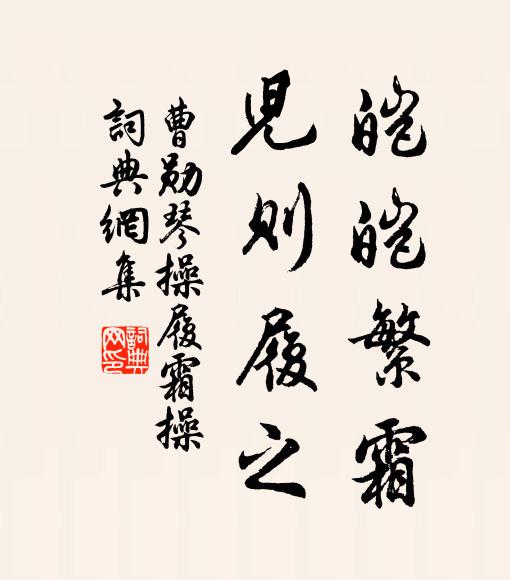 皚皚繁霜
児則履之
曹勋琴操履霜操
詞典網集
詞典网印